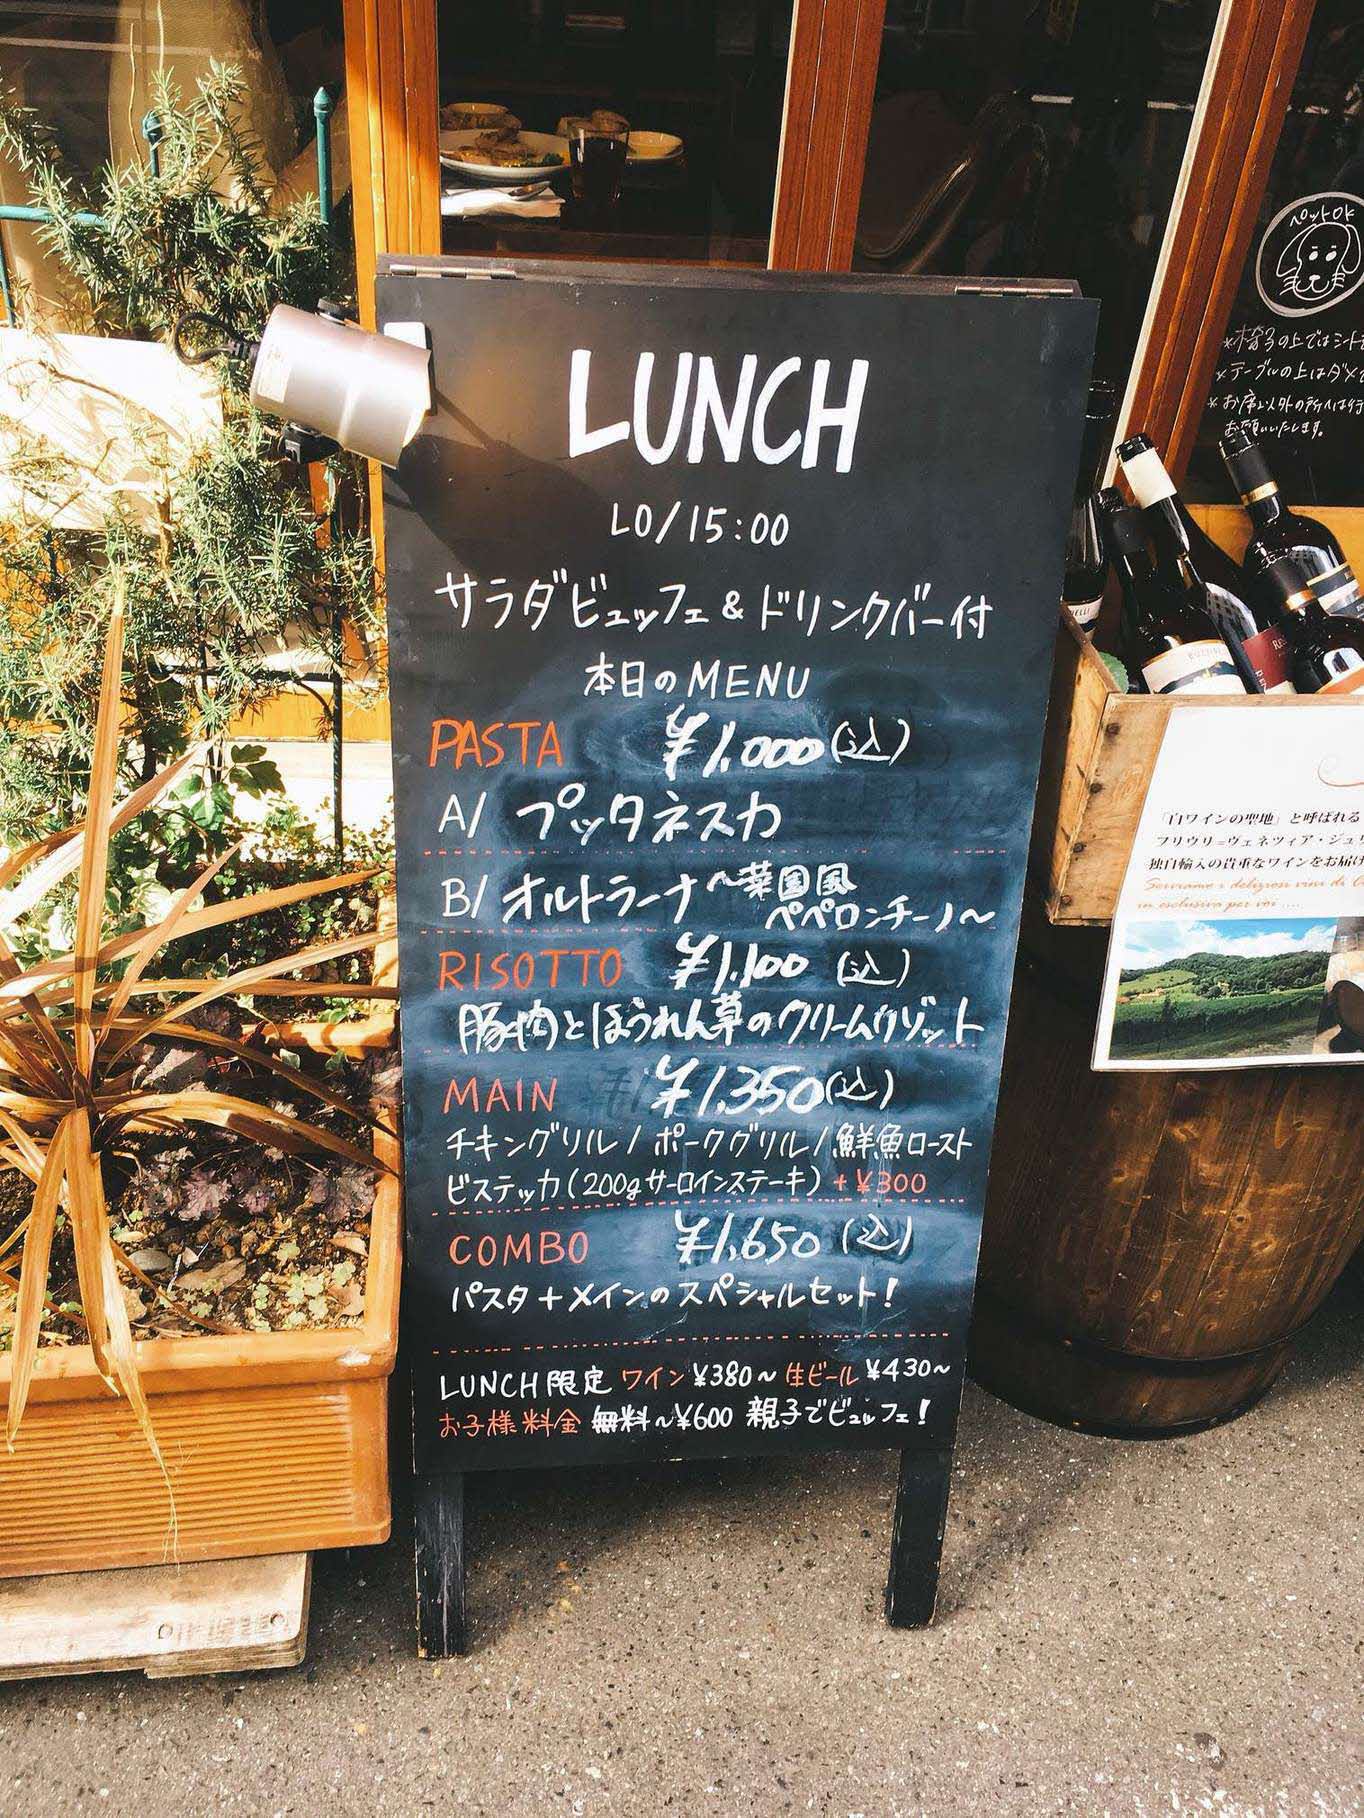 LUNCH
LO/15:00
サラダビュッフェ&ドリンクバー付
本日のMENU
PASTA ¥1.000(込)
A/ プッタネスカ
B/ オルトラーナ ~菜園風
ペペロンチーノ~
RISOTTO ¥1.100 (込)
豚肉とほうれん草のクリームリゾット
MAIN ¥1.350(込)
チキングリル/ポークグリル/鮮魚ロースト
ビステッカ(200gサーロインステーキ) +¥300
COMBO ¥1.650 (込)
パスタ+メインのスペシャルセット!
LUNCH限定 ワイン¥380~ 生ビール ¥430~
お子様料金 無料~¥600 親子でビュッフェ!
ペットOK
*椅子の上ではシート
*テーブルの上はダメ
*お席以外の所へは行
お願いいたします。
「白ワインの聖地」と呼ばれる
フリウリ=ヴェネツィア・ジュ
独自輸入の貴重なワインをお届け
Serviamo i deliziosi vini di
in esclusiva per voi ....